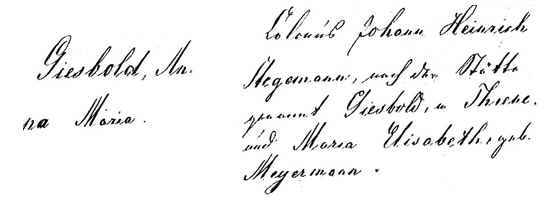 Giesbold, An-
na Maria.
Colonus Johann Heinrich
Stegemann, nach der Stätte
genannt Giesbold, in Threne.
und Maria Elisabeth, geb.
Meyermann.